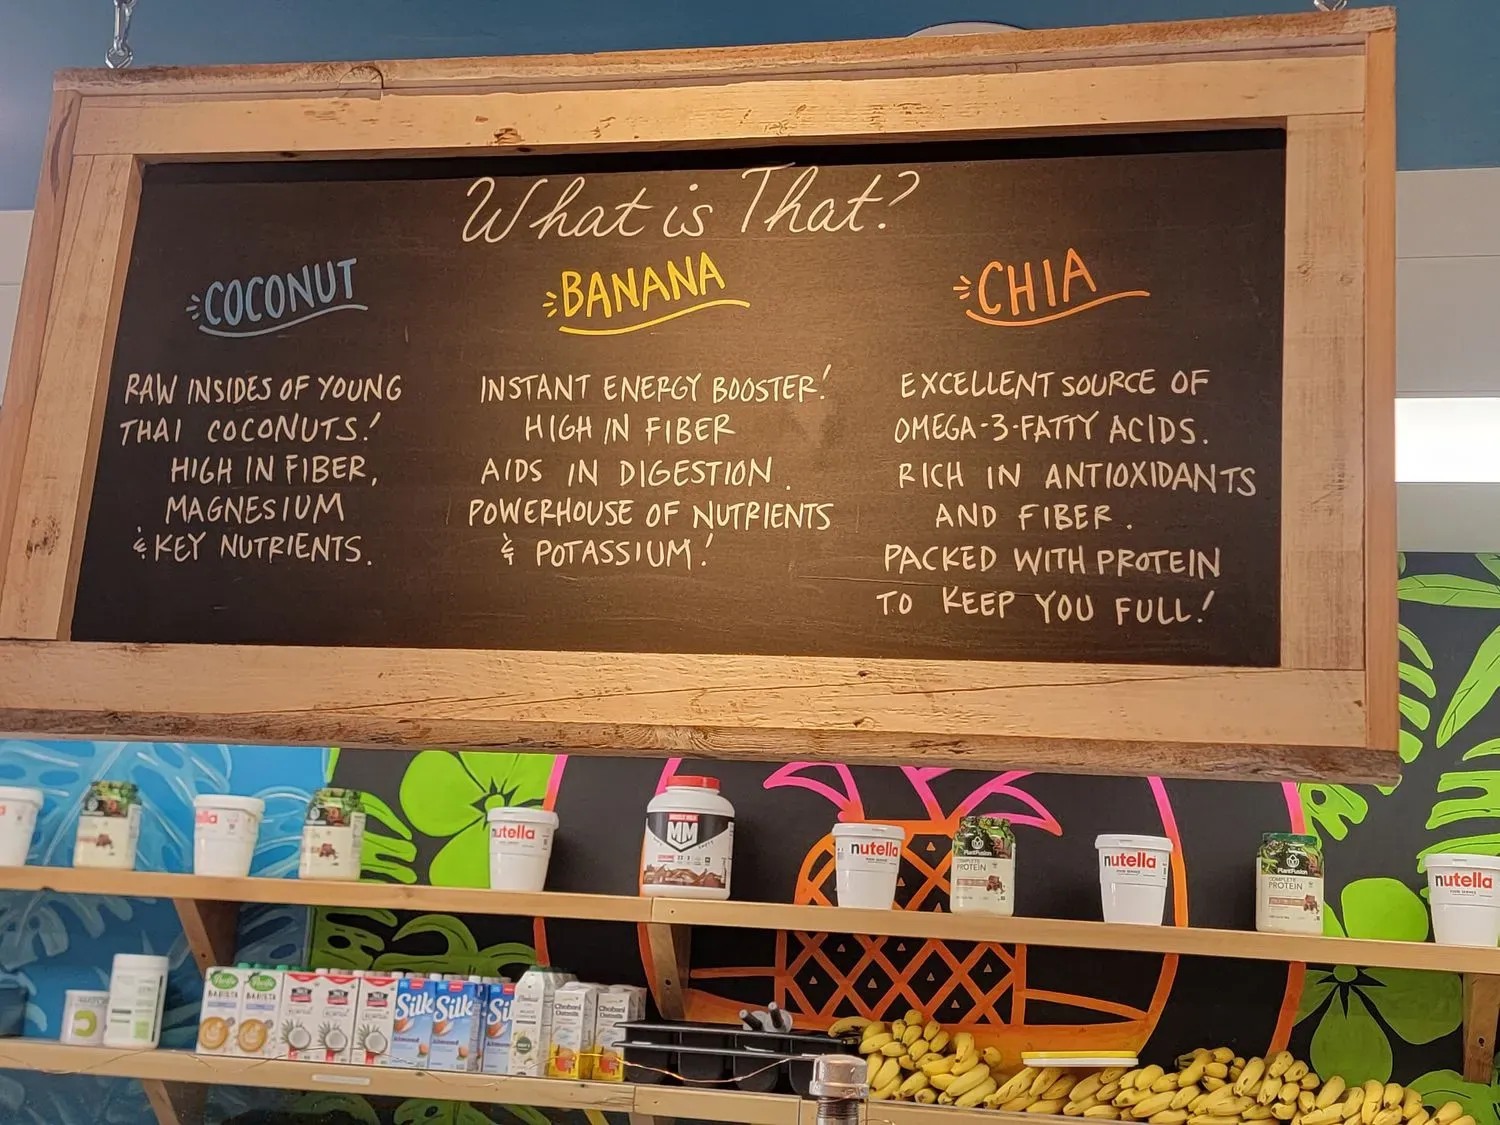 What is That?
COCONUT
RAW INSIDES OF YOUNG
THAI COCONUTS!
HIGH IN FIBER,
MAGNESIUM
& KEY NUTRIENTS.
BANANA
INSTANT ENERGY BOOSTER!
HIGH IN FIBER
AIDS IN DIGESTION.
POWERHOUSE OF NUTRIENTS
& POTASSIUM!
CHIA
EXCELLENT SOURCE OF
OMEGA-3-FATTY ACIDS.
RICH IN ANTIOXIDANTS
AND FIBER.
PACKED WITH PROTEIN
TO KEEP YOU FULL!
nutella
MM
nutella
PlantFusion
COMPLETE
PROTEIN
nutella
PlantFusion
COMPLETE
PROTEIN
nutella
BARISTA
BARISTA
Silk
Almond
Silk
Almond
Chobani
Oatmilk
Chobani
Oatmilk